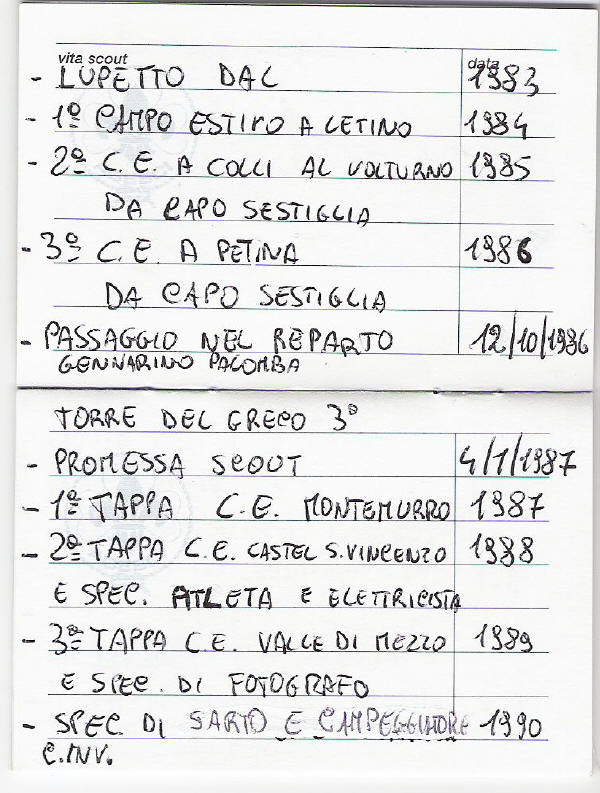 vita scout data
- LUPETTO DAL 1983
- 1º CAMPO ESTIVO A LETINO 1984
- 2º C.E. A COLLI AL VOLTURNO 1985
DA CAPO SESTIGLIA
- 3º C.E. A PETINA 1986
DA CAPO SESTIGLIA
- PASSAGGIO NEL REPARTO 12/10/1986
GENNARINO PALOMBA
TORRE DEL GRECO 3º
- PROMESSA SCOUT 4/1/1987
- 1ª TAPPA C.E. MONTEMURRO 1987
- 2ª TAPPA C.E. CASTEL S.VINCENZO 1988
E SPEC. ATLETA E ELETTRICISTA
- 3ª TAPPA C.E. VALLE DI MEZZO 1989
E SPEC. DI FOTOGRAFO
- SPEC. DI SARTO E CAMPEGGIATORE 1990
C.INV.